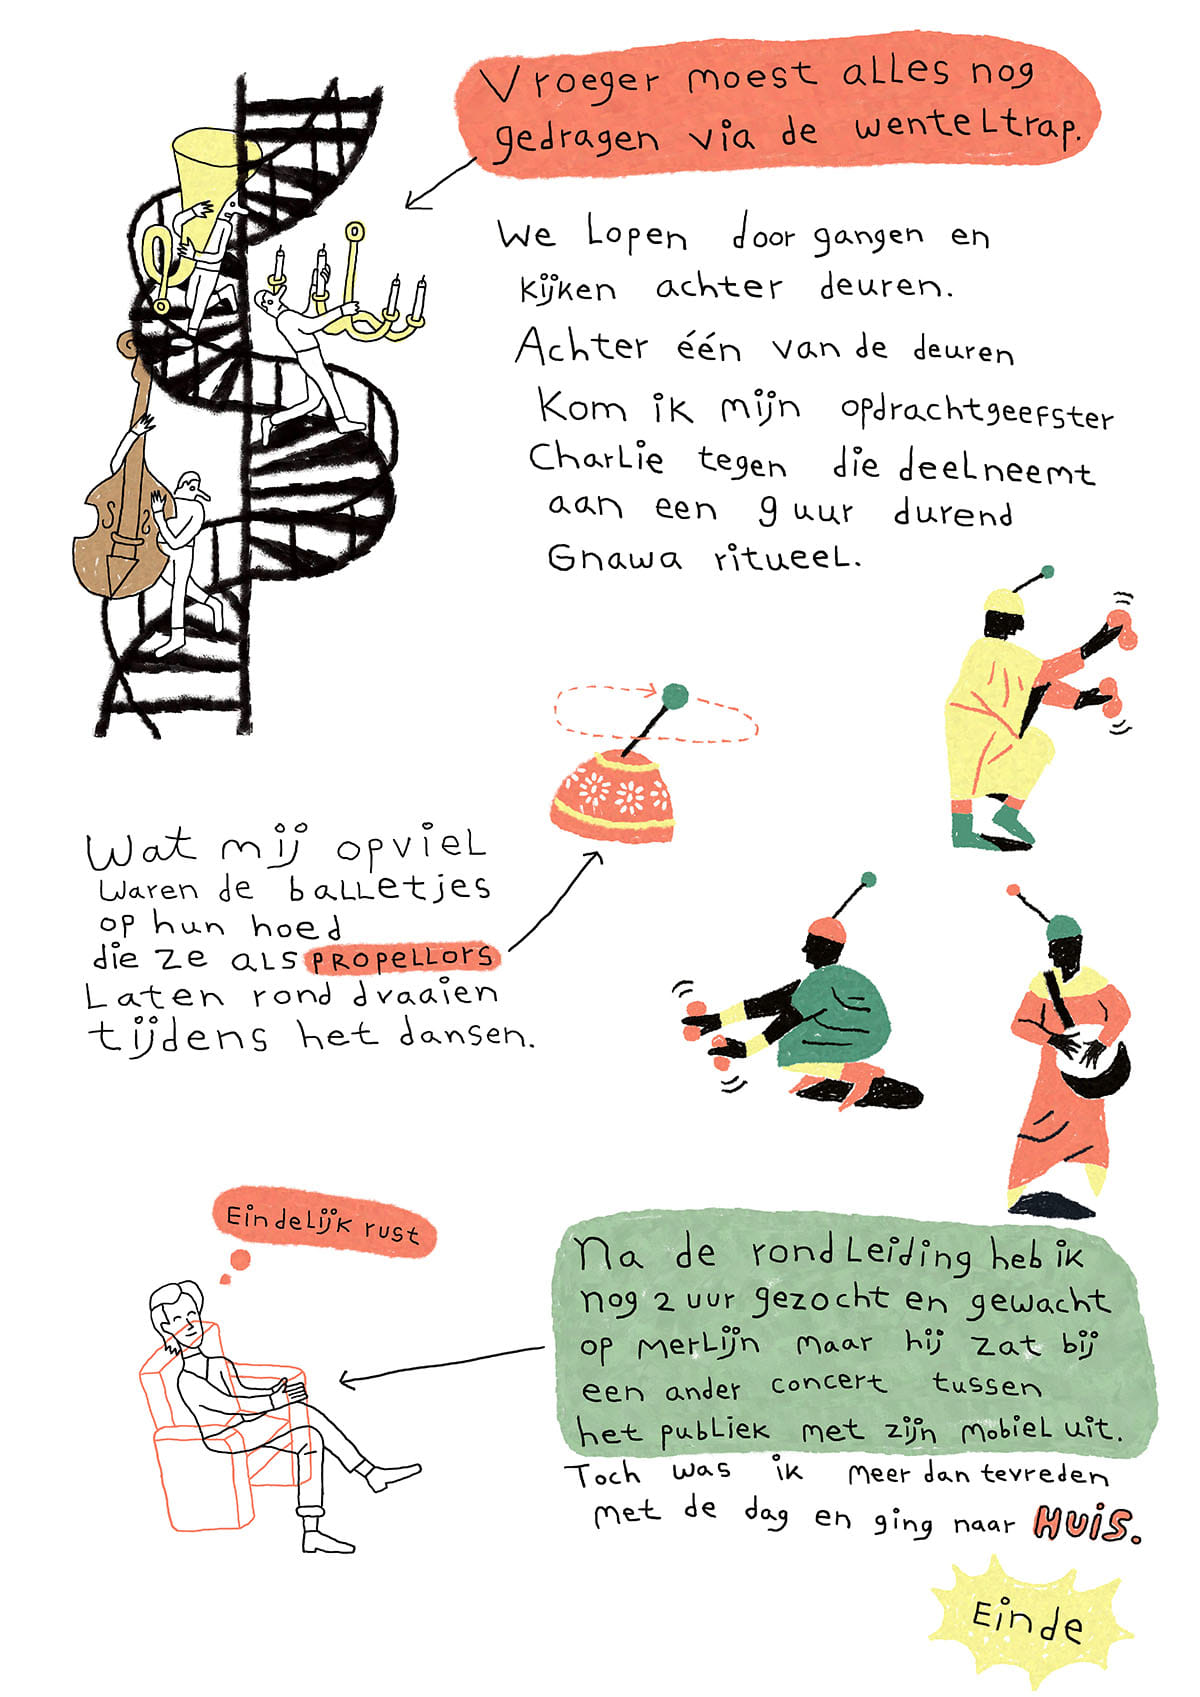 Vroeger moest alles nog
gedragen via de wenteltrap.
We lopen door gangen en
kijken achter deuren.
Achter één van de deuren
Kom ik mijn opdrachtgeefster
Charlie tegen die deelneemt
aan een 9 uur durend
Gnawa ritueel.
Wat mij opviel
waren de balletjes
op hun hoed
die ze als PROPELLORS
Laten rond draaien
tijdens het dansen.
Eindelijk rust
Na de rondleiding heb ik
nog 2 uur gezocht en gewacht
op Merlijn maar hij zat bij
een ander concert tussen
het publiek met zijn mobiel uit.
Toch was ik meer dan tevreden
met de dag en ging naar HUIS.
Einde